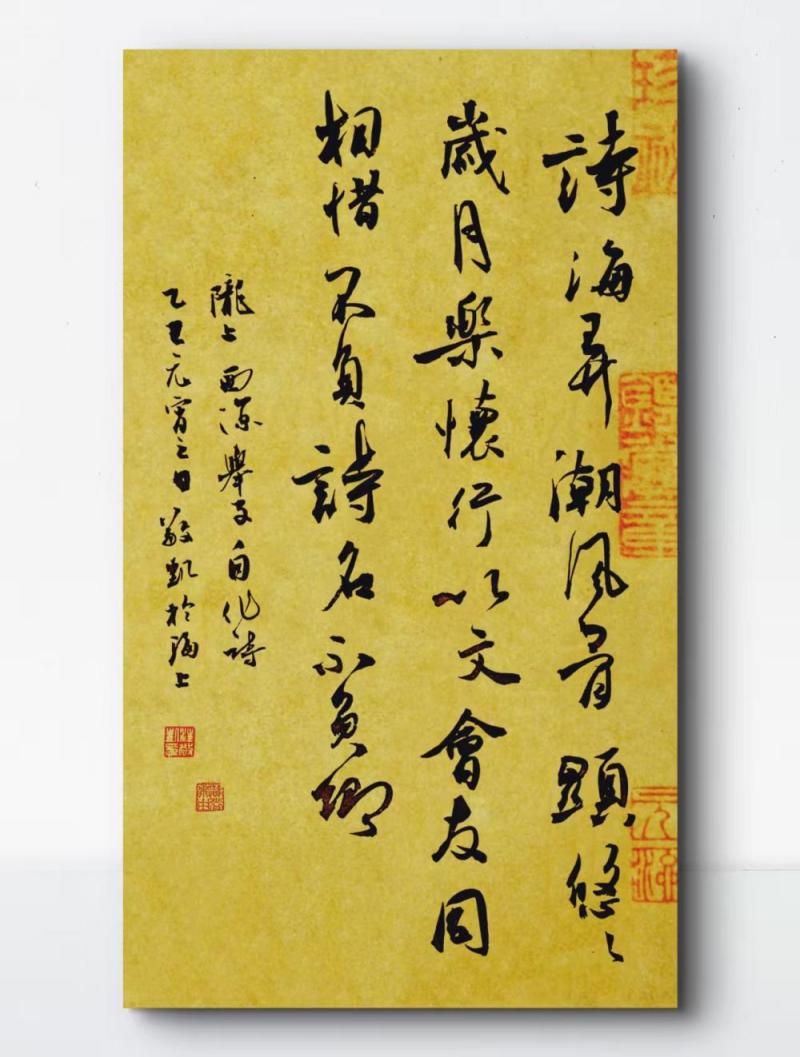 詩海弄潮風骨顯悠〻
歲月樂懷行以文會友同
相惜不負詩名不負卿
隴上西涼舉子自作詩
乙元宵之日敬凱於海上